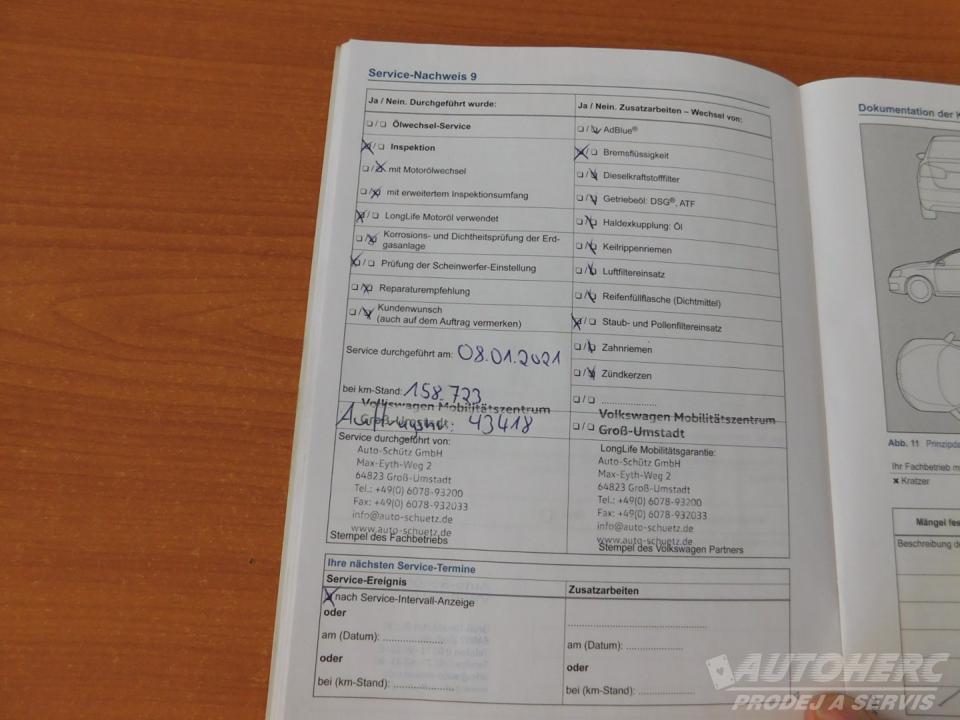 Service-Nachweis 9
Ja / Nein. Durchgeführt wurde:
❏ / ❏ Ölwechsel-Service
❏ / ❏ Inspektion
❏ / ❏ mit Motorölwechsel
❏ / ❏ mit erweitertem Inspektionsumfang
❏ / ❏ LongLife Motoröl verwendet
❏ / ❏ Korrosions- und Dichtheitsprüfung der Erd-
gasanlage
❏ / ❏ Prüfung der Scheinwerfer-Einstellung
❏ / ❏ Reparaturempfehlung
❏ / ❏ Kundenwunsch
(auch auf dem Auftrag vermerken)
Service durchgeführt am: 08.01.2021
bei km-Stand: 158.723
Volkswagen Mobilitätszentrum
Groß-Umstadt
Auftragsnr. 43418
Service durchgeführt von:
Auto-Schütz GmbH
Max-Eyth-Weg 2
64823 Groß-Umstadt
Tel.: +49(0) 6078-93200
Fax: +49(0) 6078-932033
info@auto-schuetz.de
www.auto-schuetz.de
Stempel des Fachbetriebs
Ja / Nein. Zusatzarbeiten – Wechsel von:
❏ / ❏ AdBlue®
❏ / ❏ Bremsflüssigkeit
❏ / ❏ Dieselkraftstofffilter
❏ / ❏ Getriebeöl: DSG®, ATF
❏ / ❏ Haldexkupplung: Öl
❏ / ❏ Keilrippenriemen
❏ / ❏ Luftfiltereinsatz
❏ / ❏ Reifenfüllflasche (Dichtmittel)
❏ / ❏ Staub- und Pollenfiltereinsatz
❏ / ❏ Zahnriemen
❏ / ❏ Zündkerzen
❏ / ❏ ....................
Volkswagen Mobilitätszentrum
❏ / ❏ Groß-Umstadt
LongLife Mobilitätsgarantie:
Auto-Schütz GmbH
Max-Eyth-Weg 2
64823 Groß-Umstadt
Tel.: +49(0) 6078-93200
Fax: +49(0) 6078-932033
info@auto-schuetz.de
www.auto-schuetz.de
Stempel des Volkswagen Partners
Ihre nächsten Service-Termine
Service-Ereignis
❏ nach Service-Intervall-Anzeige
oder
am (Datum): ....................
oder
bei (km-Stand): ....................
Zusatzarbeiten
........................................
oder
am (Datum): ....................
oder
bei (km-Stand): ....................
Dokumentation der
Abb. 11
Ihr Fachbetrieb
x Kratzer
Mängel
Beschreibung
AUTOHERC
PRODEJ A SERVIS